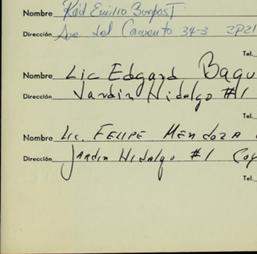 Nombre Raúl Emilio
Dirección Ave del Convento 34-3 ZP21
Tel.
Nombre Lic Edgard Baqu
Dirección Jardin Hidalgo #1
Tel.
Nombre Lic. FELIPE MENDOZA
Dirección Jardin Hidalgo #1 Coy
Tel.